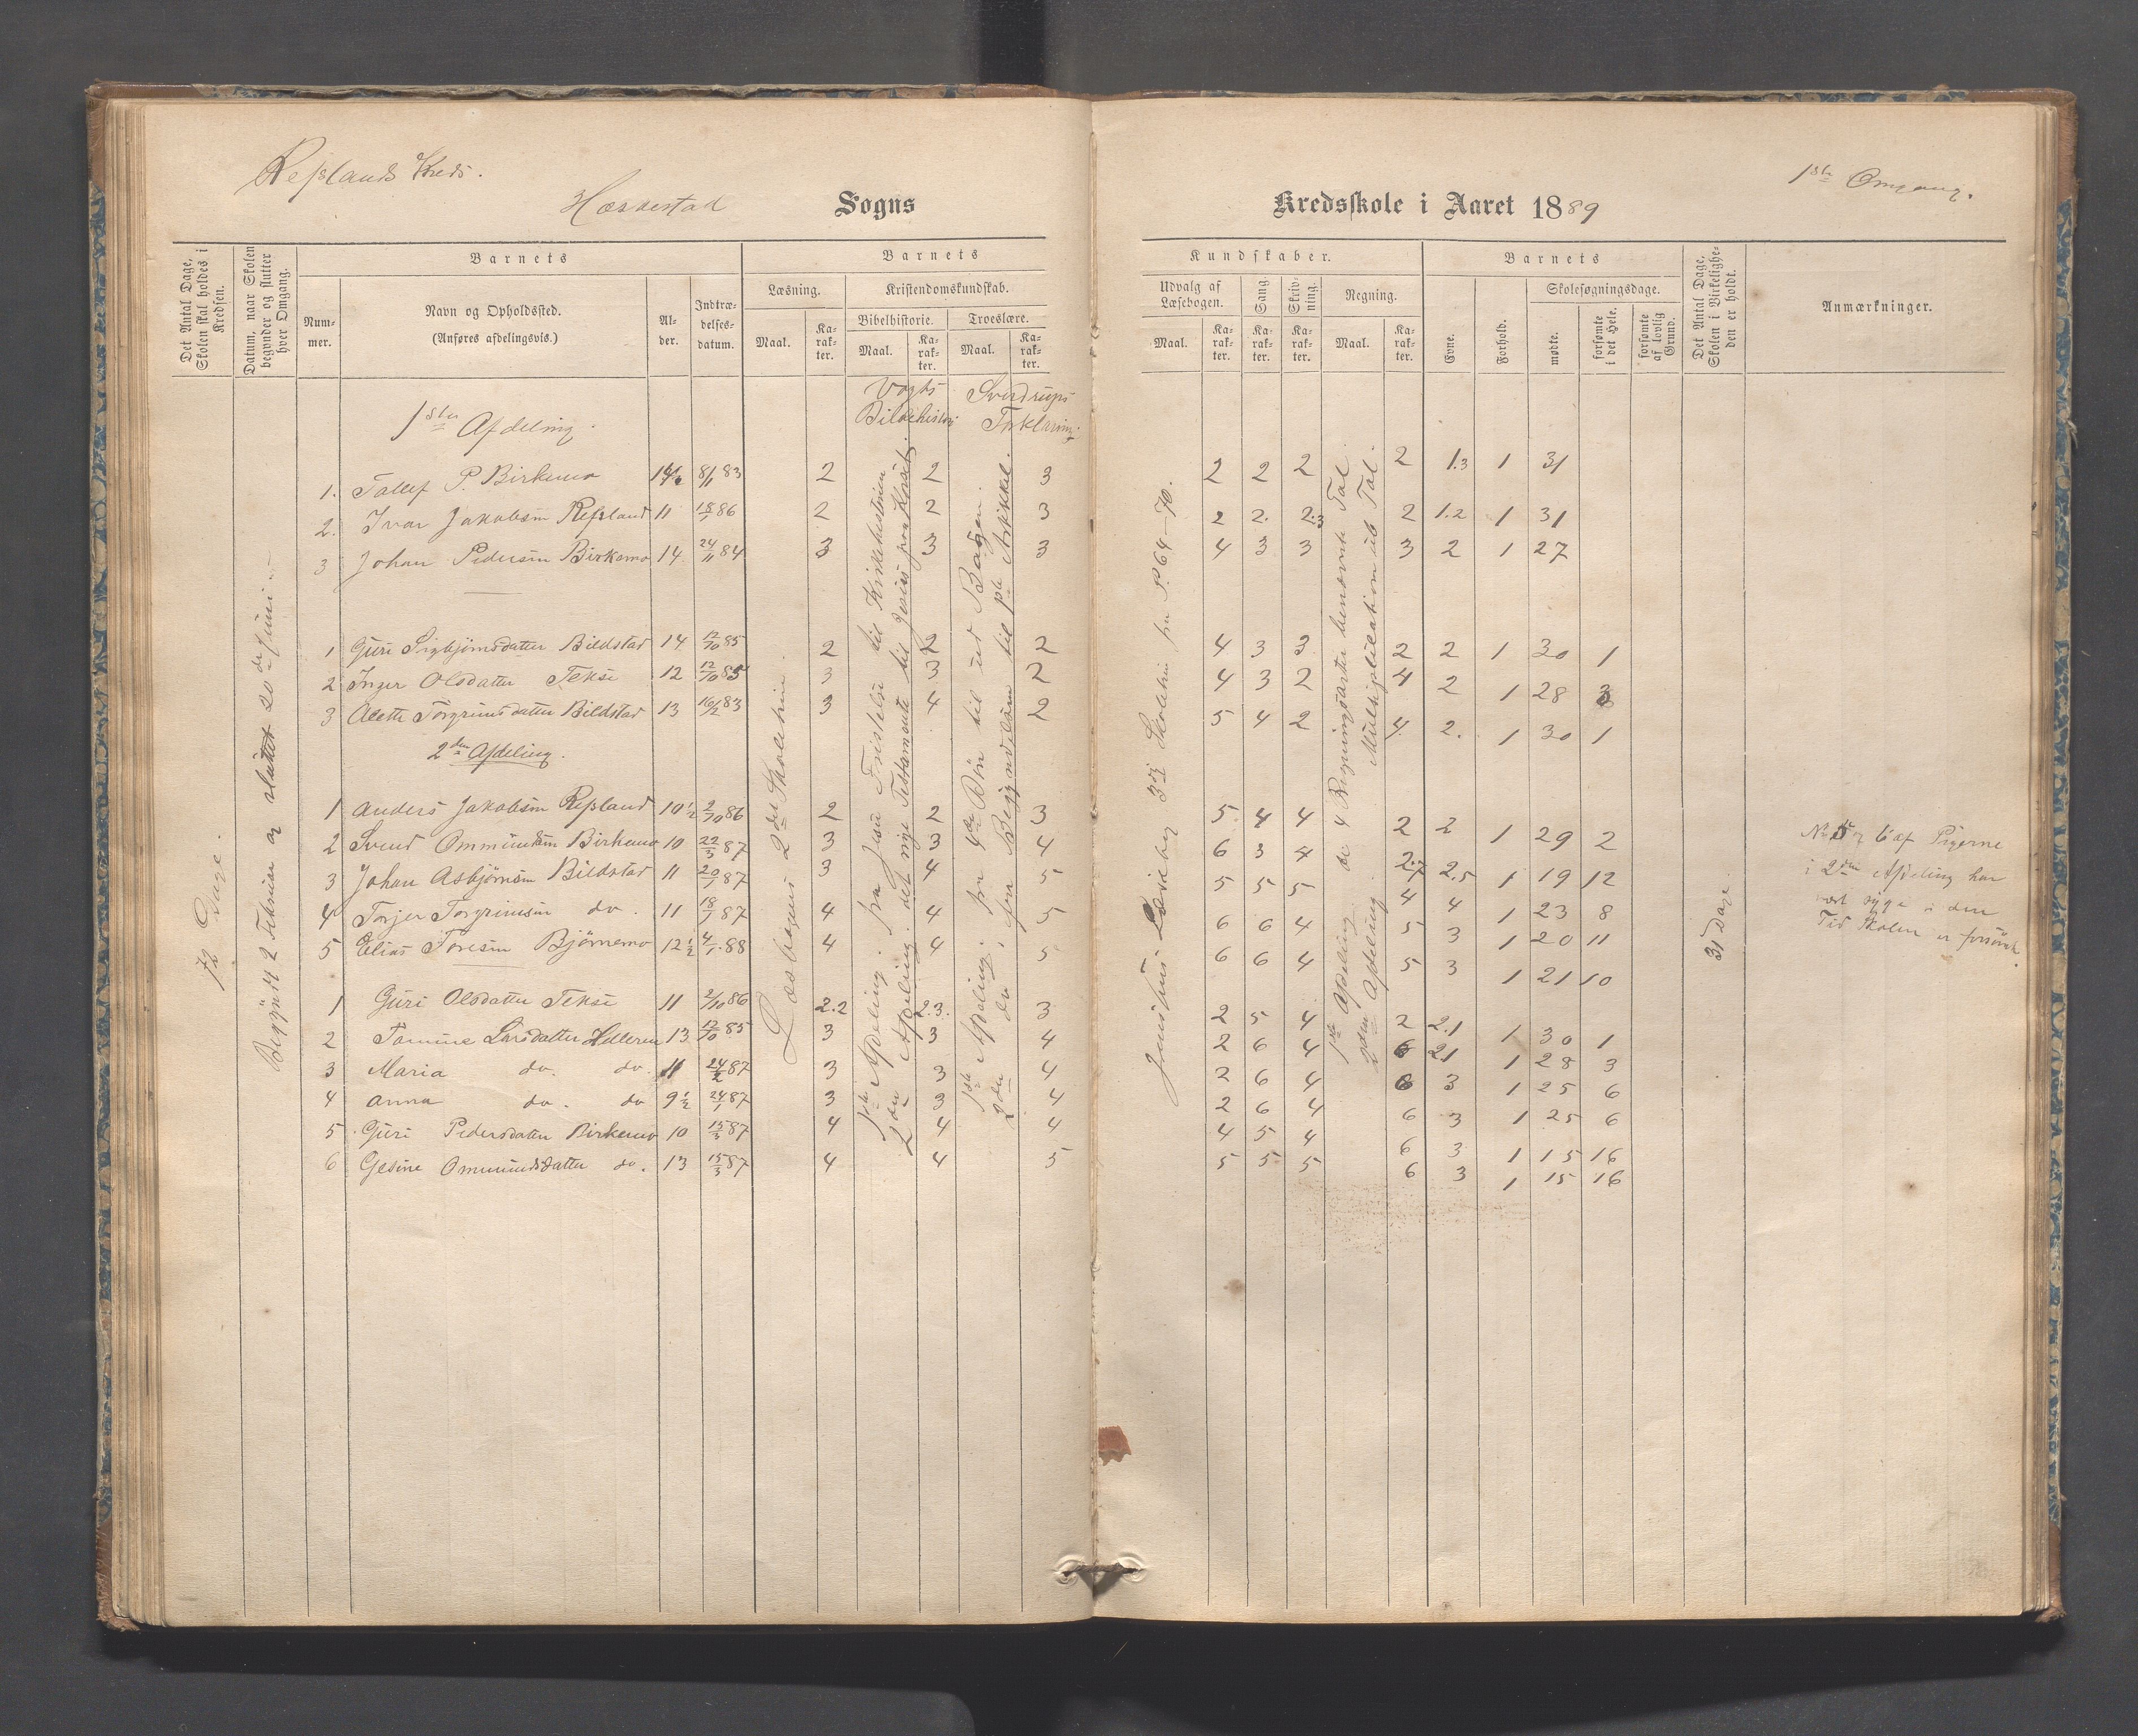 Repslands Kreds.
1ste Omgang.
Hæskestad Sogns
Kredsskole i Aaret 1889
Det Antal Dage, Skolen skal holdes i Kredsen.
Datum, naar Skolen begynder og slutter hver Omgang.
Barnets
Num-mer.
Navn og Opholdssted.
(Anføres afdelingsvis.)
Al-der.
Indtræ-delses-datum.
Barnets
Læsning.
Maal.
Ka-rak-ter.
Kristendomskundskab.
Bibelhistorie.
Maal.
Ka-rak-ter.
Troeslære.
Maal.
Ka-rak-ter.
Kundskaber.
Udvalg af Læsebogen.
Maal.
Ka-rak-ter.
Sang.
Ka-rak-ter.
Skriv-ning.
Ka-rak-ter.
Regning.
Maal.
Ka-rak-ter.
Barnets
Evne.
Forhold.
Skolesøgningsdage.
mødte.
forsømte i det Hele.
forsømte af lovlig Grund.
Det Antal Dage, Skolen i Virkelighe-den er holdt.
Anmærkninger.
72 Dage.
Begyndt 2 Februar og sluttet 20de Juni
Vogts Bibelhistori
Sverdrups Forklaring
Læsbogens 2det Skoletrin.
1ste Afdeling: fra Jesu Fristelse til Kirkehistorien
2den Afdeling: det nye Testamente til Jesus paa Korset.
1ste Afdeling: fra 4de Bøn til ud Bogen.
2den do, fra Begyndelsen til 1ste Artikkel.
Jensens Læsebog 3dje Skoletrin fra S. 64–70.
1ste Afdeling de 4 Regningsarter benævnte Tal.
2den Afdeling Multiplikation ub Tal.
31 Dage.
1ste Afdeling.
1. Tollef P Birkemo 8/11 83 2 2 3 2 2 2 2 1.3 1 31
2. Ivar Jakobsen Repsland 11 18/1 86 2 2 3 2 2. 2.3 2 1.2 1 31
3 Johan Pedersen Birkemo 14 24/11 84 3 3 3 4 3 3 3 2 1 27
1 Guri Sigbjørnsdatter Bildstad 14 12/10 85 2 2 2 4 3 3 2 2 1 30 1
2 Inger Olsdatter Tekse 12 12/10 85 3 3 2 4 3 2 4 2 1 28 3
3 Alette Torgrimsdatter Bildstad 13 16/2 83 3 4 2 5 4 2 4 2. 1 30 1
2den Afdeling.
1 Anders Jakobsen Repsland 10½ 2/10 86 2 2 3 5 4 4 2 2 1 29 2
2 Svend Ommundsen Birkemo 10 22/3 87 3 3 4 6 3 4 2.7 2.5 1 19 12
3 Johan Asbjørnsen Bildstad 11 20/1 87 3 4 5 5 5 5 4 4 1 23 8
4 Torjer Torgrimsen do. 11 18/1 87 4 4 5 6 6 4 5 3 1 20 11
5 Elias Toresen Bjørnemo 12½ 4/1 88 4 4 5 6 6 4 5 3 1 21 10
1 Guri Olsdatter Tekse 11 2/10 86 2.2 2.3. 3 2 5 4 2 2.1 1 30 1
2 Tomine Larsdatter Helleren 13 12/10 85 3 3 4 2 6 4 6 21 1 28 3
3 Maria do. do. 11 24/2 87 3 3 4 2 6 4 6 3 1 25 6
4 Anna do. do 9½ 24/1 87 3 3 4 2 6 4 6 3 1 25 6
5 Guri Pedersdatter Birkemo 10 15/3 87 4 4 4 4 5 4 6 3 1 15 16
6 Gesine Ommundsdatter do. 13 15/3 87 4 4 5 5 5 5 6 3 1 15 16
No 5 og 6 af Pigerne
i 2den Afdeling har
vært syge i den
Tid Skolen er forsømt.